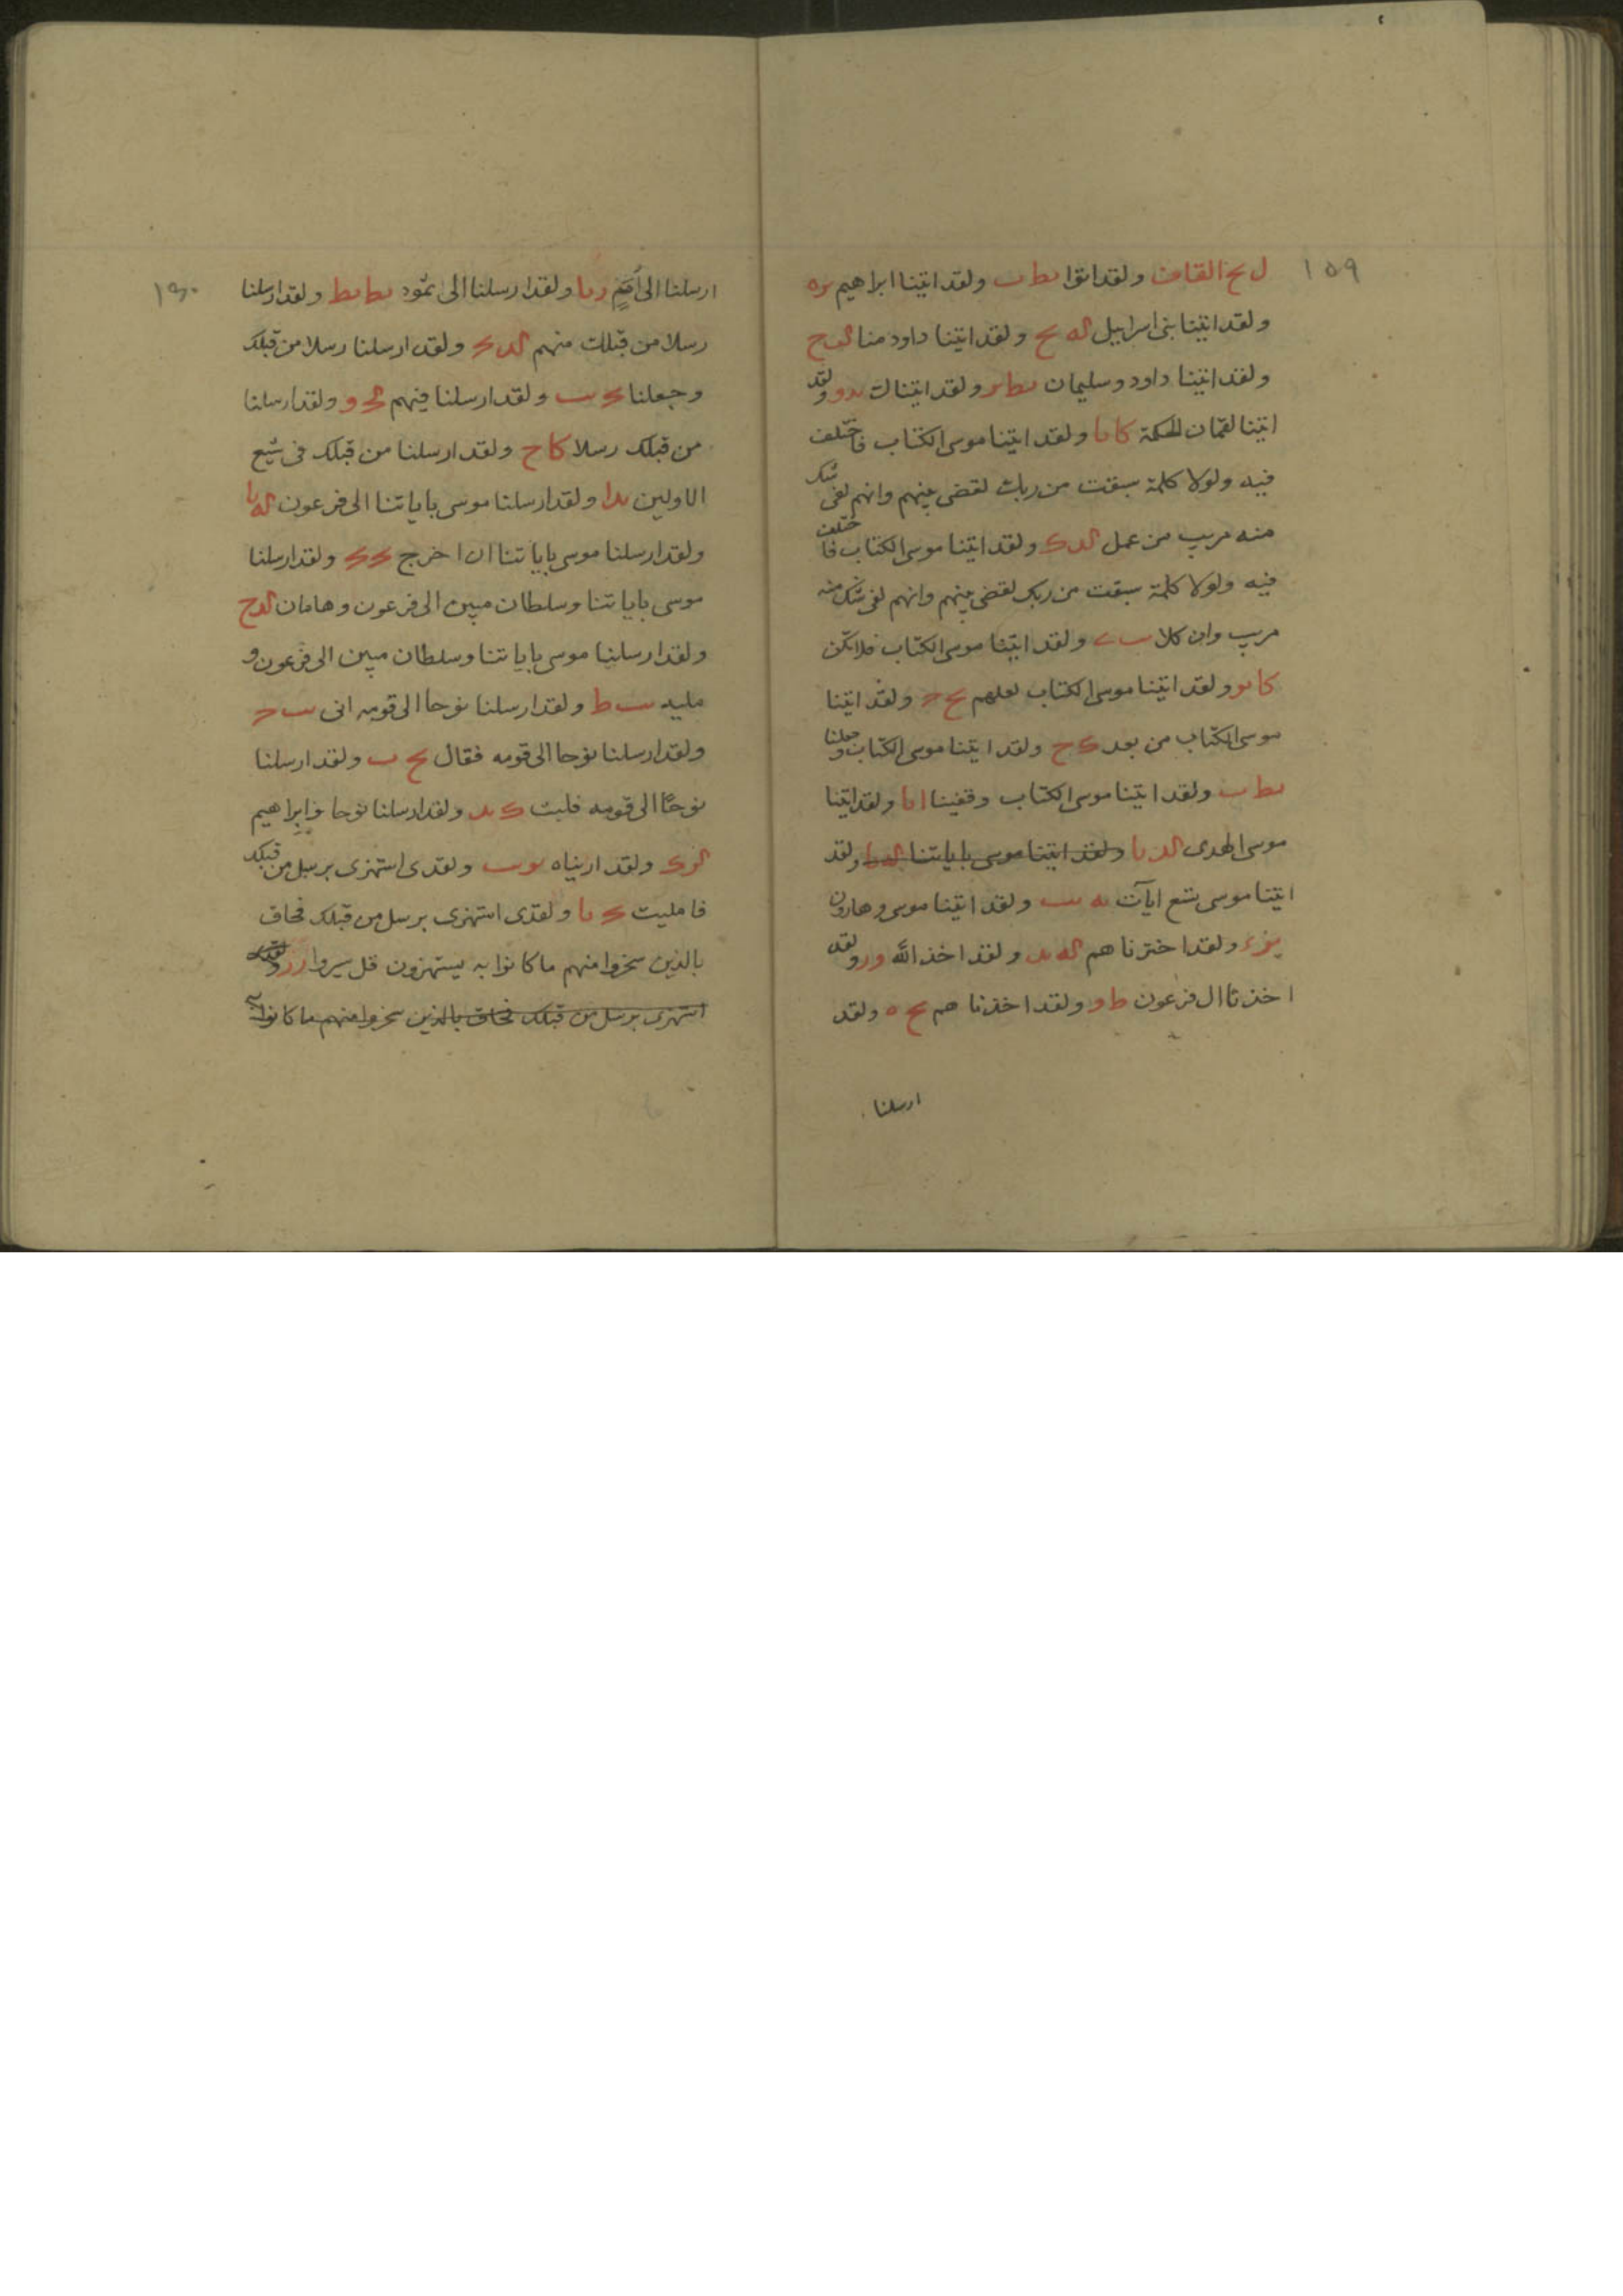 ١٥٩
ل مع القاف ولقد اتوا بط ب ولقد اتينا ابراهيم
ولقد اتينا بنى اسراييل له مح ولقد اتينا داود منا
ولقد اتينا داود وسليمان ولقد اتيناك ولقد
اتينا لقمان الحكمة كا با ولقد اتينا موسى الكتاب فاختلف
فيه ولولا كلمة سبقت من ربك لقضى بينهم وانهم لفى شك
منه مريب من عمل ولقد اتينا موسى الكتاب فاختلف
فيه ولولا كلمة سبقت من ربك لقضى بينهم وانهم لفى شك منه
مريب وان كلا ولقد اتينا موسى الكتاب فلا تكن
كا ولقد اتينا موسى الكتاب لعلهم مح ولقد اتينا
موسى الكتاب من بعد ك ح ولقد اتينا موسى الكتاب وجعلنا
بط ب ولقد اتينا موسى الكتاب وقفينا ا با ولقد اتينا
موسى الهدى ولقد اتينا موسى باياتنا ولقد
اتينا موسى تسع ايآت ولقد اتينا موسى وهارون
ولقد اخترناهم له ولقد اخذ الله ولقد
اخذنا ال فرعون ط و ولقد اخذناهم مح ه ولقد
ارسلنا
١٦٠
ارسلنا الى أُمَمٍ ر با ولقد ارسلنا الى ثمود بط بط ولقد ارسلنا
رسلا من قبلك منهم ولقد ارسلنا رسلا من قبلك
وجعلنا ولقد ارسلنا فيهم ولقد ارسلنا
من قبلك رسلا كا ح ولقد ارسلنا من قبلك فى شيع
الاولين يد ا ولقد ارسلنا موسى باياتنا الى فرعون له با
ولقد ارسلنا موسى باياتنا ان اخرج ولقد ارسلنا
موسى باياتنا وسلطان مبين الى فرعون وهامان
ولقد ارسلنا موسى باياتنا وسلطان مبين الى فرعون و
مليه ب ط ولقد ارسلنا نوحا الى قومه انى
ولقد ارسلنا نوحا الى قومه فقال مح ب ولقد ارسلنا
نوحًا الى قومه فلبث ك يد ولقد ارسلنا نوحا وابراهيم
ولقد اريناه ولقدى استهزى برسل من قبلك
فامليت با ولقدى استهزى برسل من قبلك فحاق
بالذين سخروا منهم ما كانوا به يستهزون قل سيروا ولقد
استهزى برسل من قبلك فحاق بالذين سخروا منهم ما كانوا به